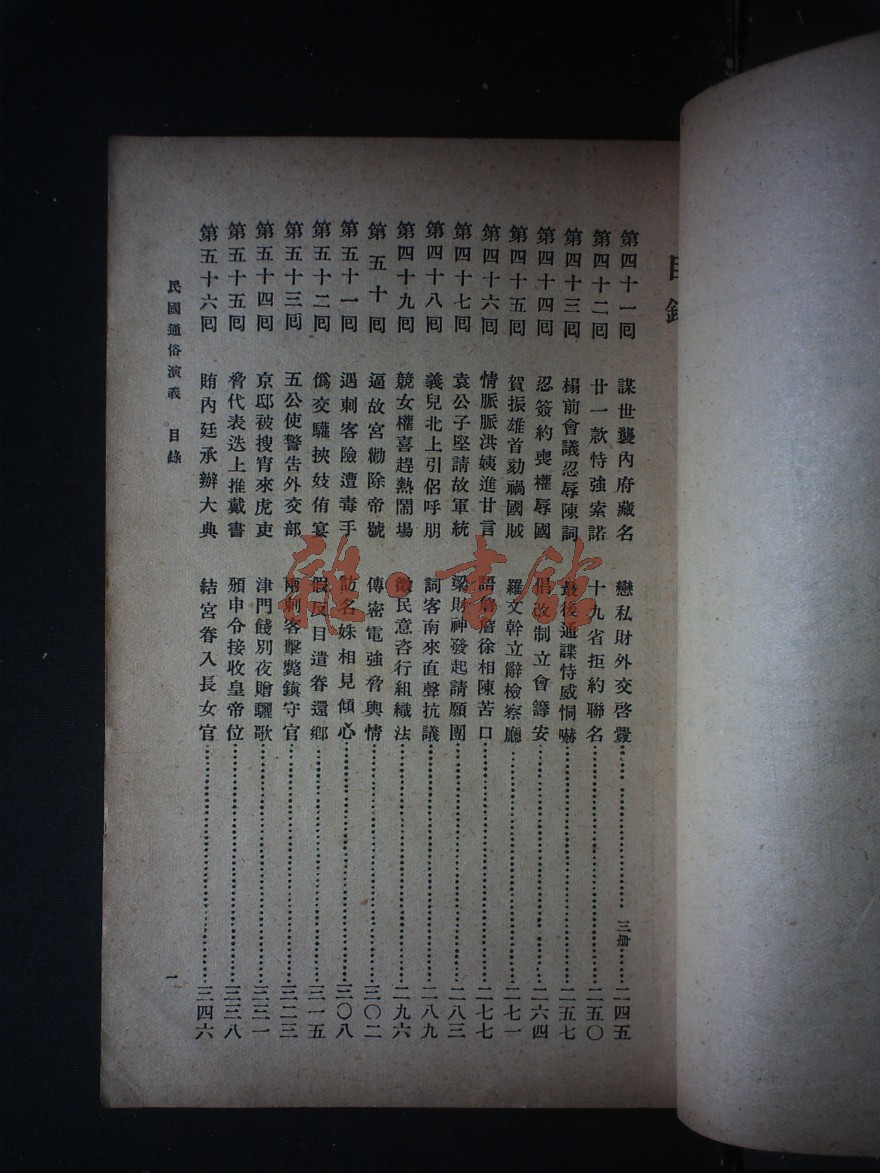 目錄
第四十一囘 謀世襲內府藏名 戀私財外交啓釁 三册 二四五
第四十二囘 廿一款恃強索諾 十九省拒約聯名 二五〇
第四十三囘 榻前會議忍辱陳詞 最後通諜恃威恫嚇 二五七
第四十四囘 忍簽約喪權辱國 倡改制立會籌安 二六四
第四十五囘 賀振雄首劾禍國賊 羅文幹立辭檢察廳 二七一
第四十六囘 情脈脈洪姨進甘言 語 徐相陳苦口 二七七
第四十七囘 袁公子堅請故軍統 梁財神發起請願團 二八三
第四十八囘 義兒北上引侶呼朋 詞客南來直聲抗議 二八九
第四十九囘 競女權喜趕熱鬧場 徵民意咨行組織法 二九六
第五十囘 逼故宮勸除帝號 傳密電強脅輿情 三〇二
第五十一囘 遇刺客險遭毒手 訪名姝相見傾心 三〇八
第五十二囘 僞交驩挾妓侑宴 假反目遣眷還鄉 三一五
第五十三囘 五公使警告外交部 兩刺客擊斃鎭守官 三二三
第五十四囘 京邸被搜宵來虎吏 津門餞別夜贈驪歌 三三一
第五十五囘 脅代表迭上推戴書 頒申令接收皇帝位 三三八
第五十六囘 賄內廷承辦大典 結宮眷入長女官 三四六
民國通俗演義 目錄 一
雜·書館